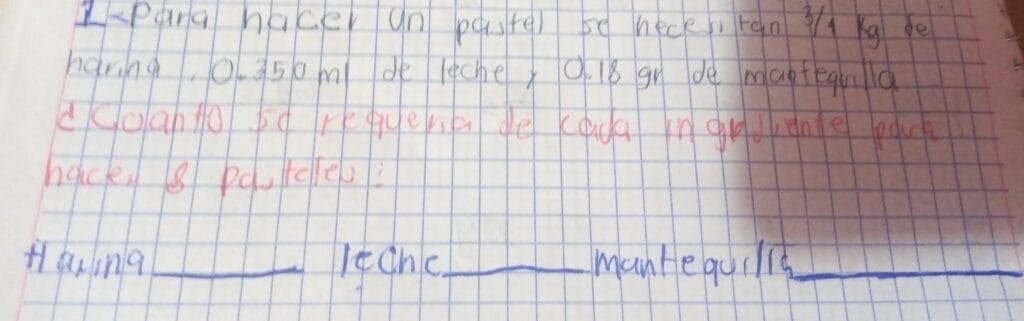 1-Para hacer un pastel se necesitan 3/4 kg de
harina, 0.350 ml de leche y 0.18 gr de mantequilla
¿Cuanto se requeria de cada ingrediente para
hacer 8 pasteles:
Harina______ leche______ mantequilla______